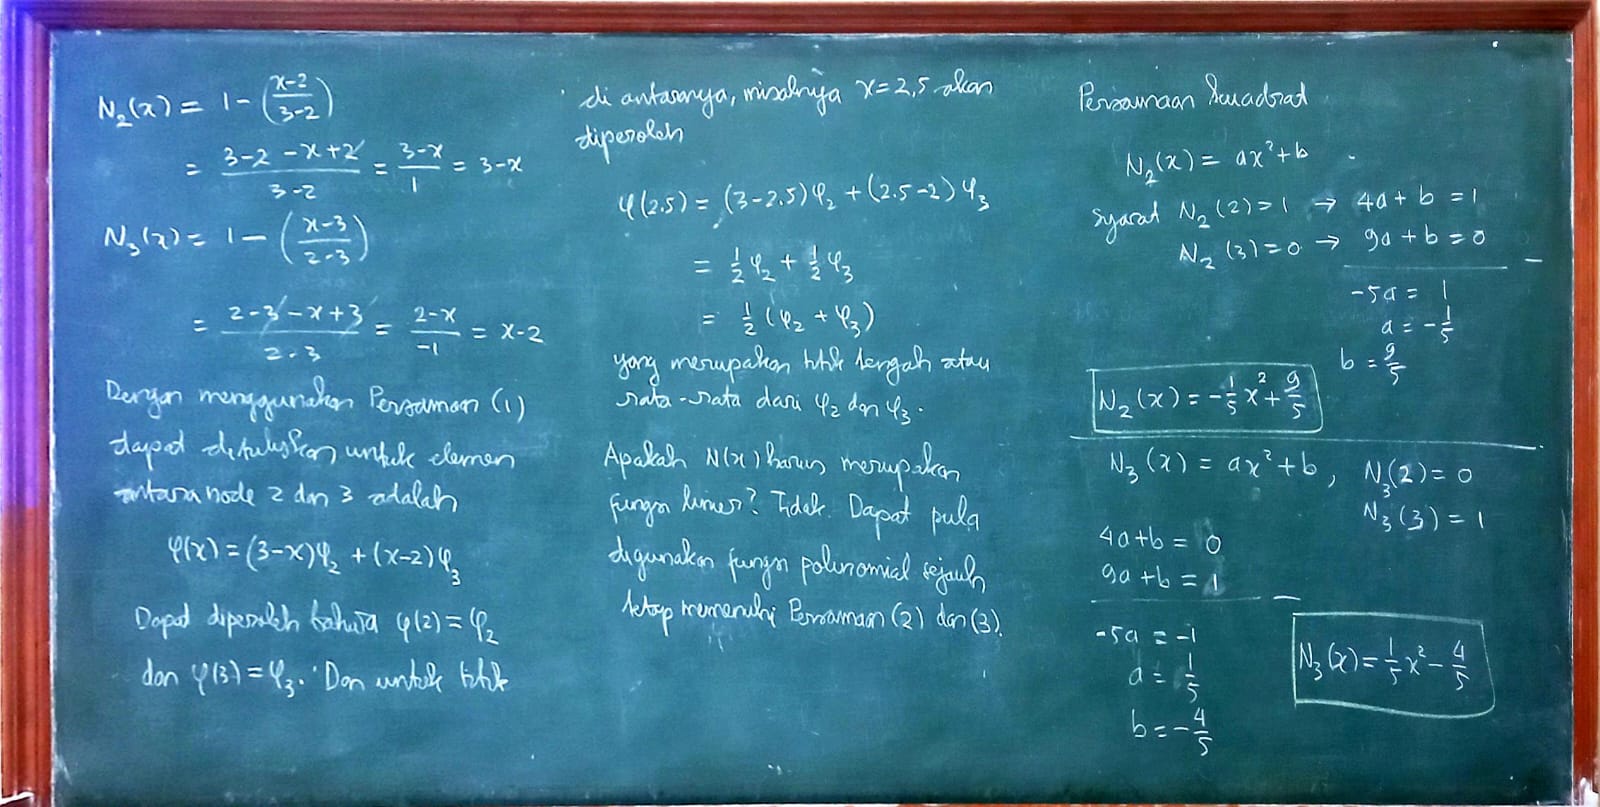 N₂(x) = 1 - ((x-2)/(3-2))
= (3-2-x+2)/(3-2) = (3-x)/1 = 3-x
N₃(x) = 1 - ((x-3)/(2-3))
= (2-3-x+3)/(2-3) = (2-x)/-1 = x-2
Dengan menggunakan Persamaan (1)
dapat dituliskan untuk elemen
antara node 2 dan 3 adalah
φ(x) = (3-x)φ₂ + (x-2)φ₃
Dapat diperoleh bahwa φ(2) = φ₂
dan φ(3) = φ₃. Dan untuk titik
di antaranya, misalnya x=2,5 akan
diperoleh
φ(2.5) = (3-2.5)φ₂ + (2.5-2)φ₃
= ½φ₂ + ½φ₃
= ½(φ₂ + φ₃)
yang merupakan titik tengah atau
rata-rata dari φ₂ dan φ₃.
Apakah N(x) harus merupakan
fungsi linier? Tidak. Dapat pula
digunakan fungsi polinomial sejauh
tetap memenuhi Persamaan (2) dan (3).
Persamaan kuadrat
N₂(x) = ax²+b
syarat N₂(2)=1 → 4a+b=1
N₂(3)=0 → 9a+b=0 -
-5a = 1
a = -1/5
b = 9/5
N₂(x) = -1/5 x² + 9/5
N₃(x) = ax²+b, N₃(2)=0
N₃(3)=1
4a+b = 0
9a+b = 1 -
-5a = -1
a = 1/5
b = -4/5
N₃(x) = 1/5 x² - 4/5